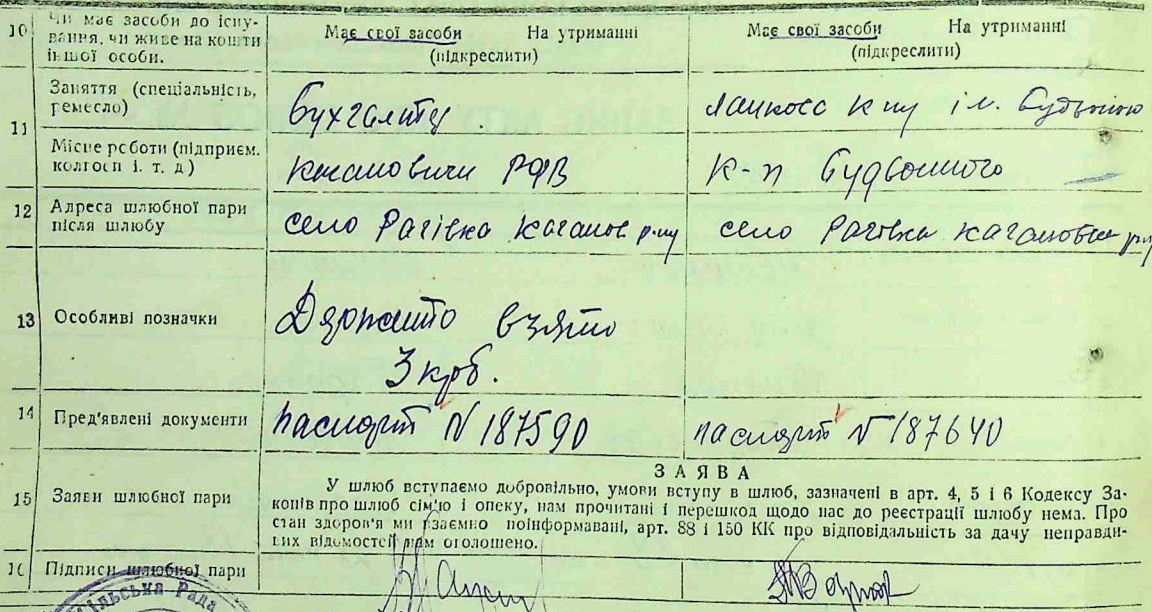 10 Чи має засоби до існу-
вання, чи живе на кошти
іншої особи.
Має свої засоби На утриманні
(підкреслити)
Має свої засоби На утриманні
(підкреслити)
11 Заняття (спеціальність,
ремесло)
Бухгалтер
к-пу ім. Будьоного
Місце роботи (підприєм.
колгосп і. т. д)
Каганович РФВ
К-п Будьонного
12 Адреса шлюбної пари
після шлюбу
село Рагівка Каганов р-ну
село Рагівка Каганович р-ну
13 Особливі позначки
взято
3 крб.
14 Пред'явлені документи
паспорт № 187590
паспорт № 187640
15 Заяви шлюбної пари
ЗАЯВА
У шлюб вступаємо добровільно, умови вступу в шлюб, зазначені в арт. 4, 5 і 6 Кодексу За-
конів про шлюб сім'ю і опеку, нам прочитані і перешкод щодо нас до реєстрації шлюбу нема. Про
стан здоров'я ми взаємно поінформавані, арт. 88 і 150 КК про відповідальність за дачу неправди-
вих відомостей нам оголошено.
16 Підписи шлюбної пари
сільська Рада